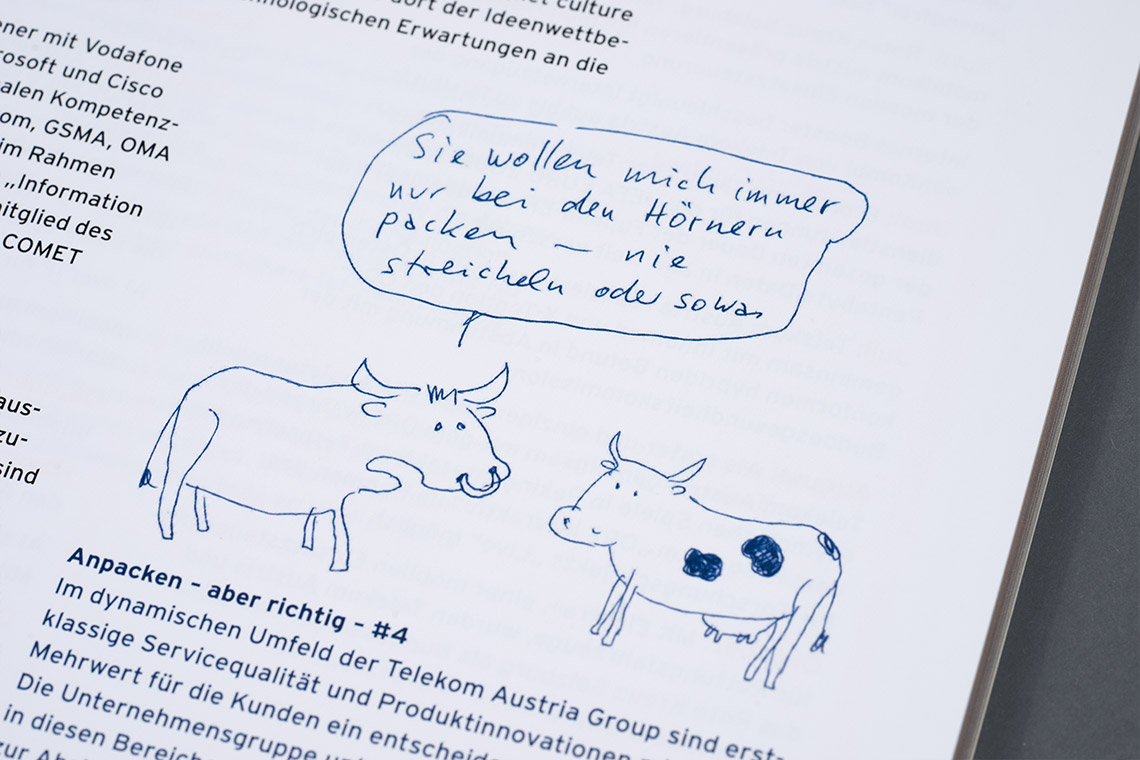 culture
nologischen Erwartungen an die
ort der Ideenwettbe-
ener mit Vodafone
rosoft und Cisco
alen Kompetenz-
om, GSMA, OMA
im Rahmen
„Information
mitglied des
COMET
Sie wollen mich immer
nur bei den Hörnern
packen – nie
streicheln oder sowas
aus-
zu-
sind
Anpacken – aber richtig – #4
Im dynamischen Umfeld der Telekom Austria Group sind erst-
klassige Servicequalität und Produktinnovationen
Mehrwert für die Kunden ein entscheide
Die Unternehmensgruppe
in diesen Bereich
zur